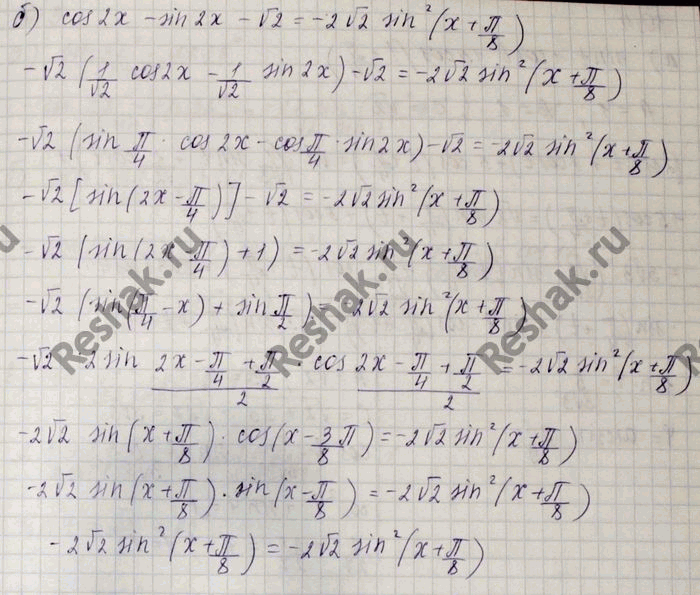 б) cos2x - sin2x - √2 = -2√2 sin²(x + π/8)
-√2 (1/√2 cos2x - 1/√2 sin2x) - √2 = -2√2 sin²(x + π/8)
-√2 (sin π/4 · cos2x - cos π/4 · sin2x) - √2 = -2√2 sin²(x + π/8)
-√2 [sin(2x - π/4)] - √2 = -2√2 sin²(x + π/8)
-√2 (sin(2x - π/4) + 1) = -2√2 sin²(x + π/8)
-√2 (sin(π/4 - x) + sin π/2) = -2√2 sin²(x + π/8)
-√2 · 2 sin (2x - π/4 + π/2)/2 · cos (2x - π/4 + π/2)/2 = -2√2 sin²(x + π/8)
-2√2 sin(x + π/8) · cos(x - 3/8 π) = -2√2 sin²(x + π/8)
-2√2 sin(x + π/8) · sin(x - π/8) = -2√2 sin²(x + π/8)
-2√2 sin²(x + π/8) = -2√2 sin²(x + π/8)
Reshak.ru
Reshak.ru
Reshak.ru